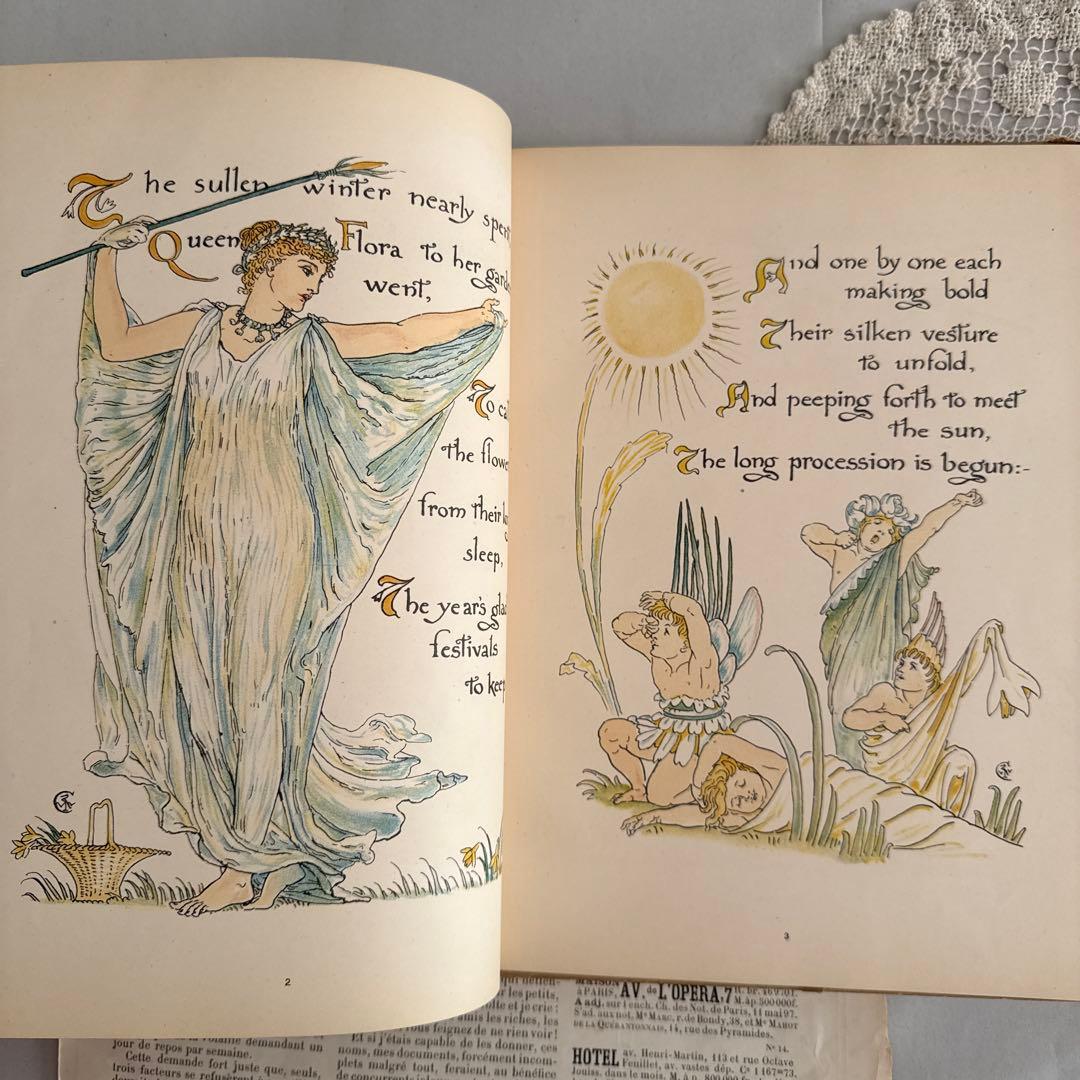 The sullen winter nearly spent
Queen Flora to her
went,
To
the
from their
sleep,
The year's
festivals
to keep
2
And one by one each
making bold
Their silken vesture
to unfold,
And peeping forth to meet
the sun,
The long procession is begun:-
3
jour de repos par semaine.
Cette demande fort juste que, seuls,
trois facteurs se
les petits,
et je crie:
les riches, les
vous feignez de ne rien voir!
Et si j'étais capable de les donner, ces
noms, mes documents, forcément incom-
plets malgré tout, feraient, au bénéfice
MAISON
à PARIS, AV. de L'OPERA, 7
M. à p. 500000f.
A adj. sur 1 ench. Ch. des Not. de Paris, 11 mai 97.
S'ad. aux not. Mes Marc, r. de Bondy, 38, et Me Mahot
DE LA QUÉRANTONNAIS, 14, rue des Pyramides.
No 14.
HOTEL av. Henri-Martin, 113 et rue Octave
Feuillet, av. vastes dép. Ce 1167m73.
Jouiss. dans le mois. M. à p.